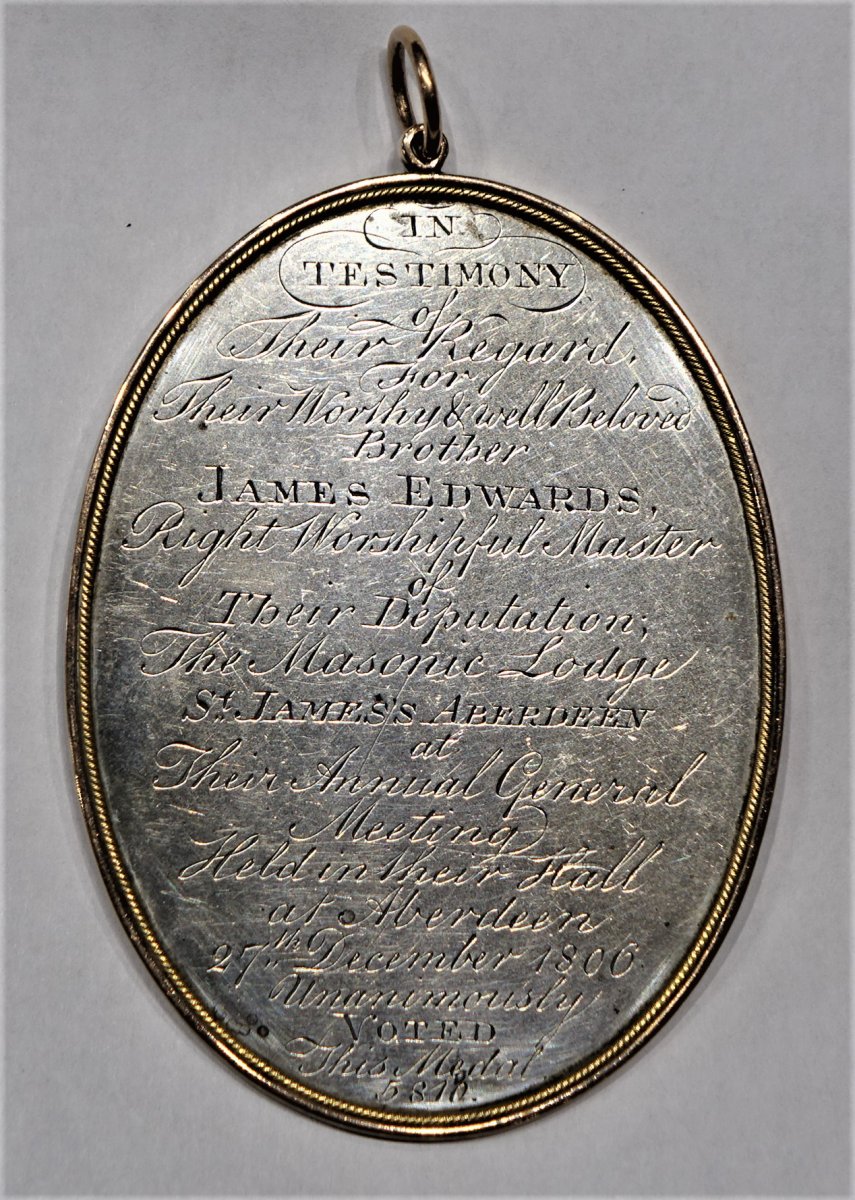 IN
TESTIMONY
of
Their Regard,
For
Their Worthy & well Beloved
Brother
JAMES EDWARDS,
Right Worshipful Master
of
Their Deputation,
The Masonic Lodge
St. JAMES'S ABERDEEN
at
Their Annual General
Meeting
Held in their Hall
at Aberdeen
27th December 1806
Unanimously
VOTED
This Medal
5810.